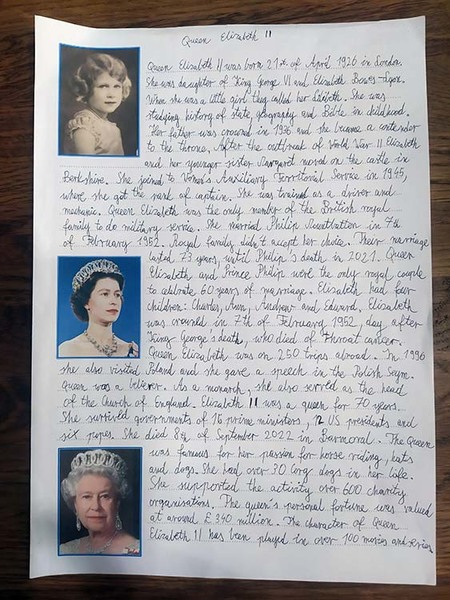 Queen Elizabeth II
Queen Elizabeth II was born 21st of April 1926 in London.
She was daughter of King George VI and Elisabeth Bowes-Lyon.
When she was a little girl they called her Lilibeth. She was
studying history of state, geography and Bible in childhood.
Her father was crowned in 1936 and she became a contender
to the throne. After the outbreak of World War II Elizabeth
and her younger sister Margaret moved on the castle in
Berkshire. She joined to Women's Auxiliary Territorial Service in 1945,
where she got the rank of captain. She was trained as a driver and
mechanic. Queen Elizabeth was the only member of the British royal
family to do military service. She married Philip in 7th
of February 1952. Royal family didn't accept her choice. Their marriage
lasted 73 years, until Philip's death in 2021. Queen
Elizabeth and Prince Philip were the only royal couple
to celebrate 60 years of marriage. Elisabeth had four
children: Charles, Ann, Andrew and Edward. Elizabeth
was crowned in 7th of February 1952, day after
King George's death, who died of throat cancer.
Queen Elizabeth was on 250 trips abroad. In 1996
she also visited Poland and she gave a speech in the Polish Seym.
Queen was a believer. As a monarch, she also served as the head
of the Church of England. Elizabeth II was a queen for 70 years.
She survived governments of 16 prime ministers, 12 US presidents and
six popes. She died 8th of September 2022 in Barmoral. The Queen
was famous for her passion for horse riding, hats
and dogs. She had over 30 Corgi dogs in her life.
She supported the activity over 600 charity
organisations. The queen's personal fortune was valued
at around £340 million. The character of Queen
Elizabeth II has been played in over 100 movies and